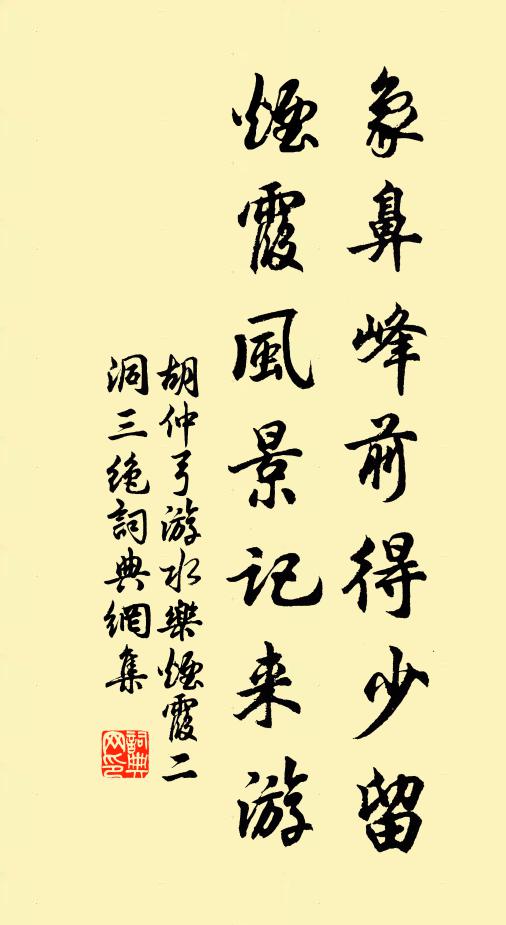 象鼻峰前得少留
煙霞風景記来游
胡仲弓游水樂煙霞二
洞三绝詞典網集
詞典网印